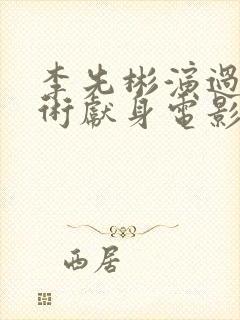 李先彬演過
術獻身電影
西居